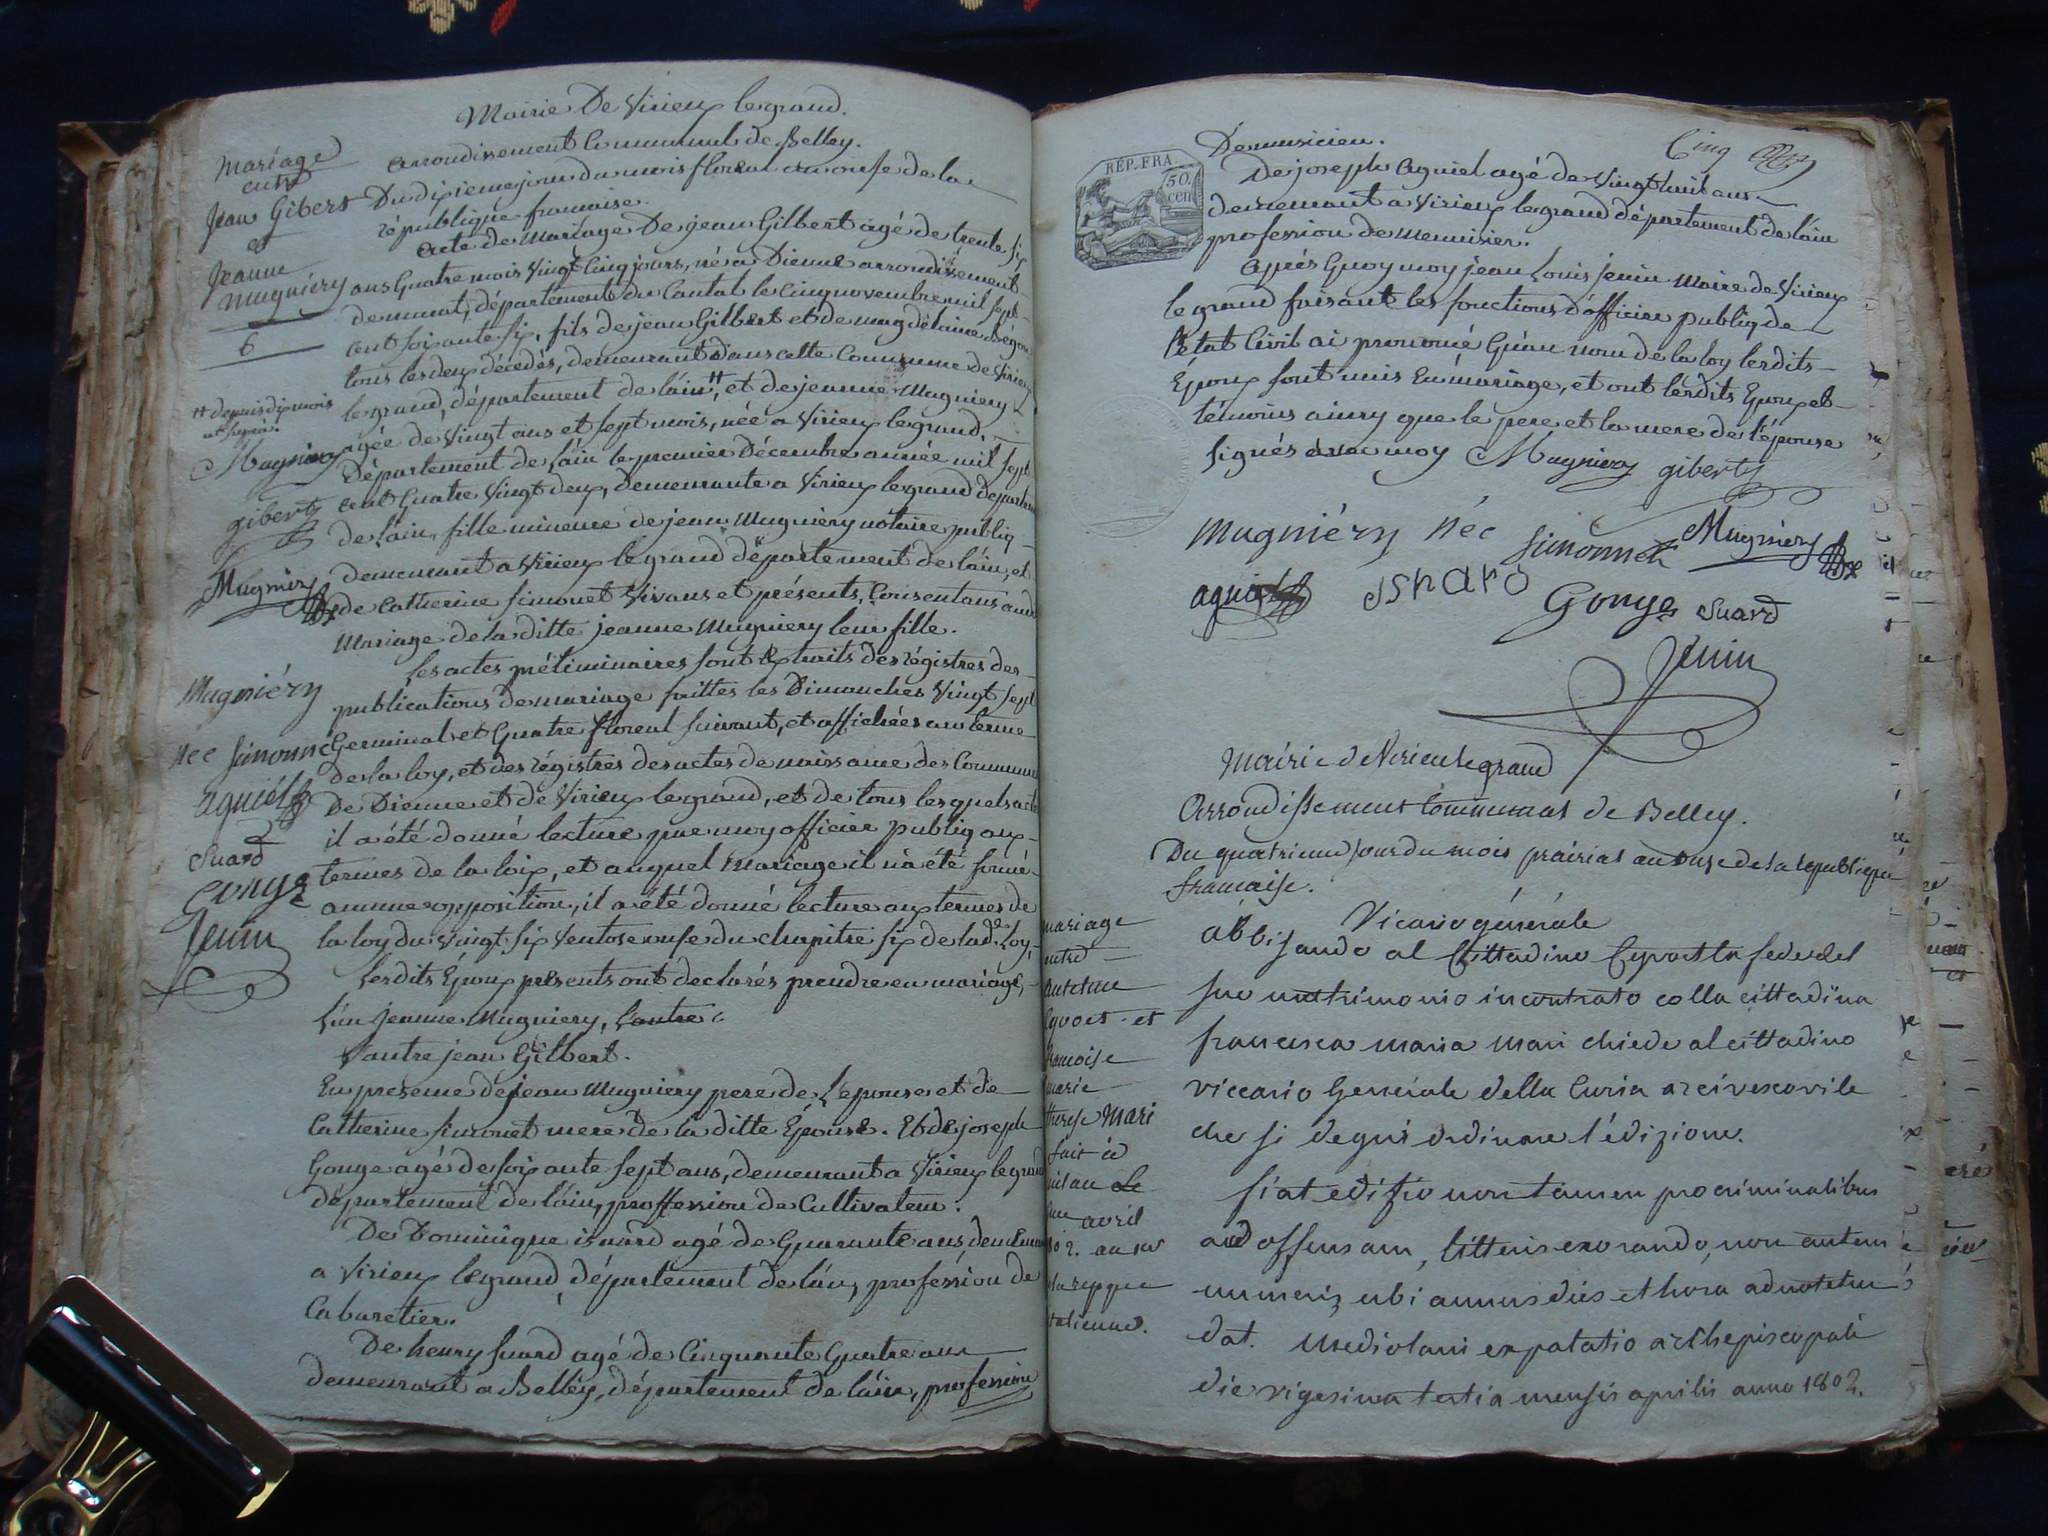 Mairie De Virieu legrand.
arrondissement Communal de Belley.
Mariage
entre
Jean Gibert
et
Jeanne
Mugniéry
6
Du dixieme jour du mois floreal an onse de la
république francaise.
acte de mariage De jean Gilbert agé de trente six
ans Quatre mois Vingt Cinq jours, né a Dienne arrondissement
de murat, département du Cantal le Cinq novembre mil sept
cent soixante six, fils de jean Gilbert et de magdelaine
tous les deux décédés, demeurant dans cette Commune de Virieu
legrand, département de láin, ++ et de jeanne Mugniery
++ depuis dix mois
Mugniery
giberty
Mugniéry
agée de Vingt ans et sept mois, née a Virieu legrand,
département de láin le premier Décembre année mil sept
cent Quatre Vingt deux, demeurante a Virieu legrand
de láin, fille mineure de jean Mugniery notaire publiq
demeurant a Virieu legrand département de láin, et
de Catherine simonet Vivans et présents, Consentans au
Mariage de la ditte jeanne Mugniery leur fille.
les actes préliminaires sont Extraits des régistres des
publications de mariage faittes les Dimanches Vingt sept
Germinal et Quatre floreal suivant, et affichées au terme
de la loy, et des régistres des actes de naissance des Communes
De Dienne et de Virieu legrand, et de tous les quels actes
il a été donné lecture par moy officier publiq aux
termes de la loix, et auquel Mariage il n'a été formé
aucune opposition, il a été donné lecture aux termes de
la loy du Vingt six Ventose onse du chapitre six de lad. loy.
Mugniéry
née simonnet
aguiél
Suard
Gonge
Jenin
lesdits Époux présents ont declarés prendre en mariage,
L'un jeanne Mugniery, L'autre
L'autre jean Gilbert.
En presence de jean Mugniery pere de L'epouse et de
Catherine simonet mere de la ditte Épouse. Et de joseph
Gonge agé de soixante sept ans, demeurant a Virieu legrand
département de láin, proffession de Cultivateur.
De Dominique isnard agé de Quarante ans, demeurant
a Virieu legrand, département de láin, proféssion de
Cabaretier.
De henry suard agé de Cinquante Quatre ans
demeurant a Belléy, département de láin, profession
De musicien.
Cinq
RÉP. FRA.
50. cen
De joseph aguiel agé de Vingt huit ans
demeurant a Virieu legrand département de láin
profession de Menuisier.
Aprés Quoy moy jean Louis jenin Maire de Virieu
legrand faisant les fonctions d'officier publiq de
létat Civil ai prononcé Qu'au nom de la loy lesdits
Époux sont unis En mariage, et ont lesdits Epoux et
témoins ainsy que le pere et la mere de l'épouse
signés avec moy Mugniery giberty
Mugniéry née simonnet Mugniéry
aguiel isnard Gonge Suard
Jenin
Mairie de Virieulegrand
Arrondissement Communal de Belley.
Du quatrieme jour du mois prairial an onse de la republique
francaise.
mariage
entre
antelme
Cyvoct et
francoise
marie
therese Mari
fait à
milan le
avril
1802. an 1er
de la reppue
italienne.
Vicario générale
abbisando al Cittadino Cyvoct la fede del
suo matrimonio incontrato colla cittadina
francesca maria mari chiede al cittadino
viccario Generale della Curia arcivescovile
che si degni ordinare l'édizione.
fiat editio non tamen pro criminalibus
ad offensam, litteris exorando, non autem
numeris ubi annus dies et hora adnotetur
dat. Mediolani ex palatio archiepiscopali
die vigesima tertia mensis aprilis anno 1802.